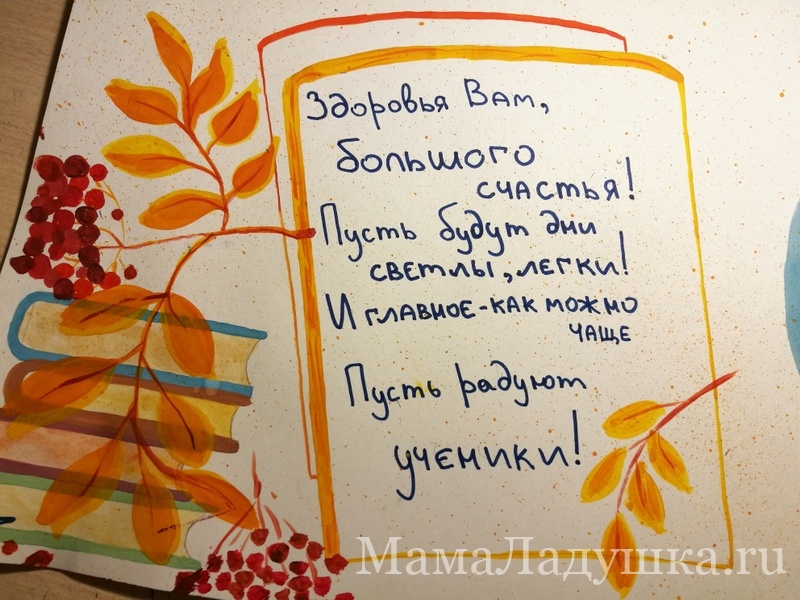 Здоровья Вам,
большого
счастья!
Пусть будут дни
светлы, легки!
И главное-как можно
чаще
Пусть радуют
ученики!
МамаЛадушка.ru